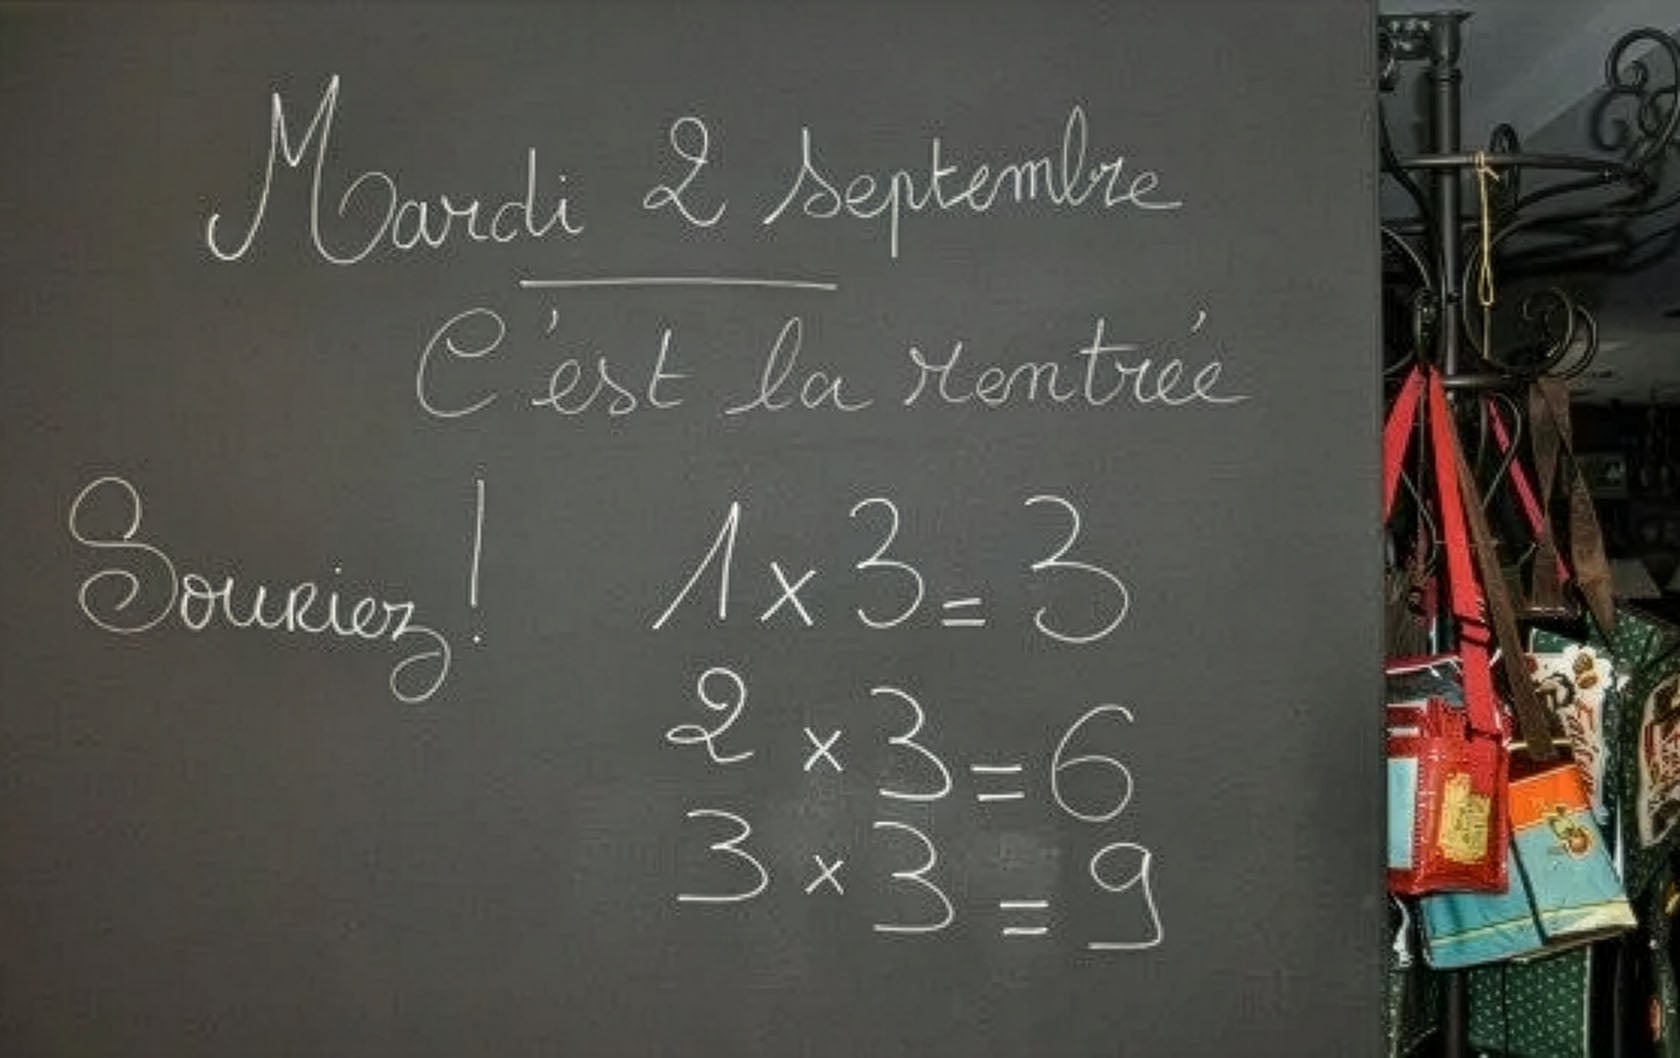 Mardi 2 septembre
C'est la rentrée
Souriez!
1 x 3 = 3
2 x 3 = 6
3 x 3 = 9